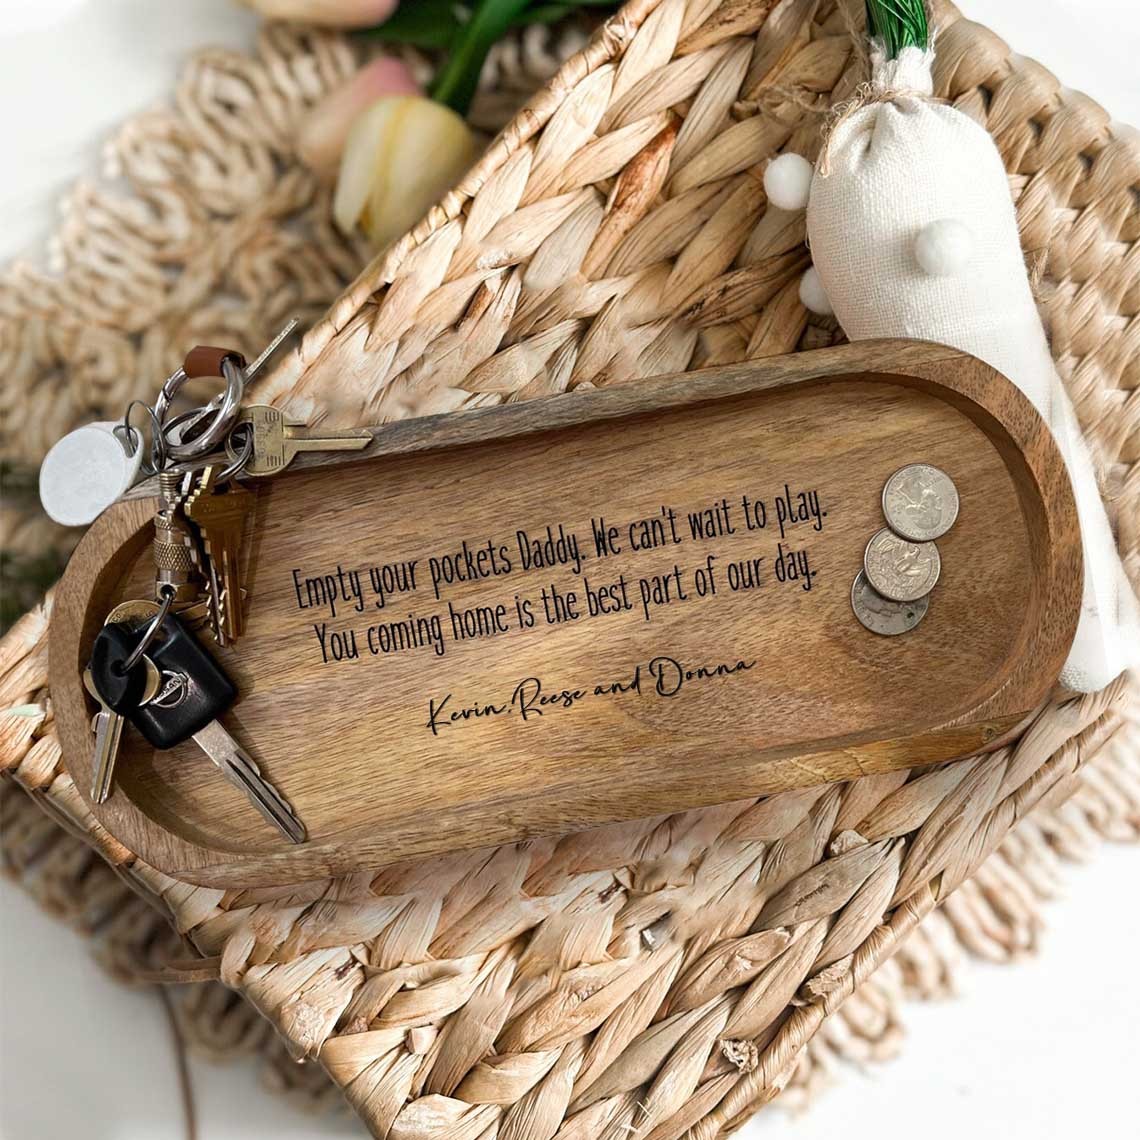 Empty your pockets Daddy. We can't wait to play.
You coming home is the best part of our day.
Kevin, Reese and Donna